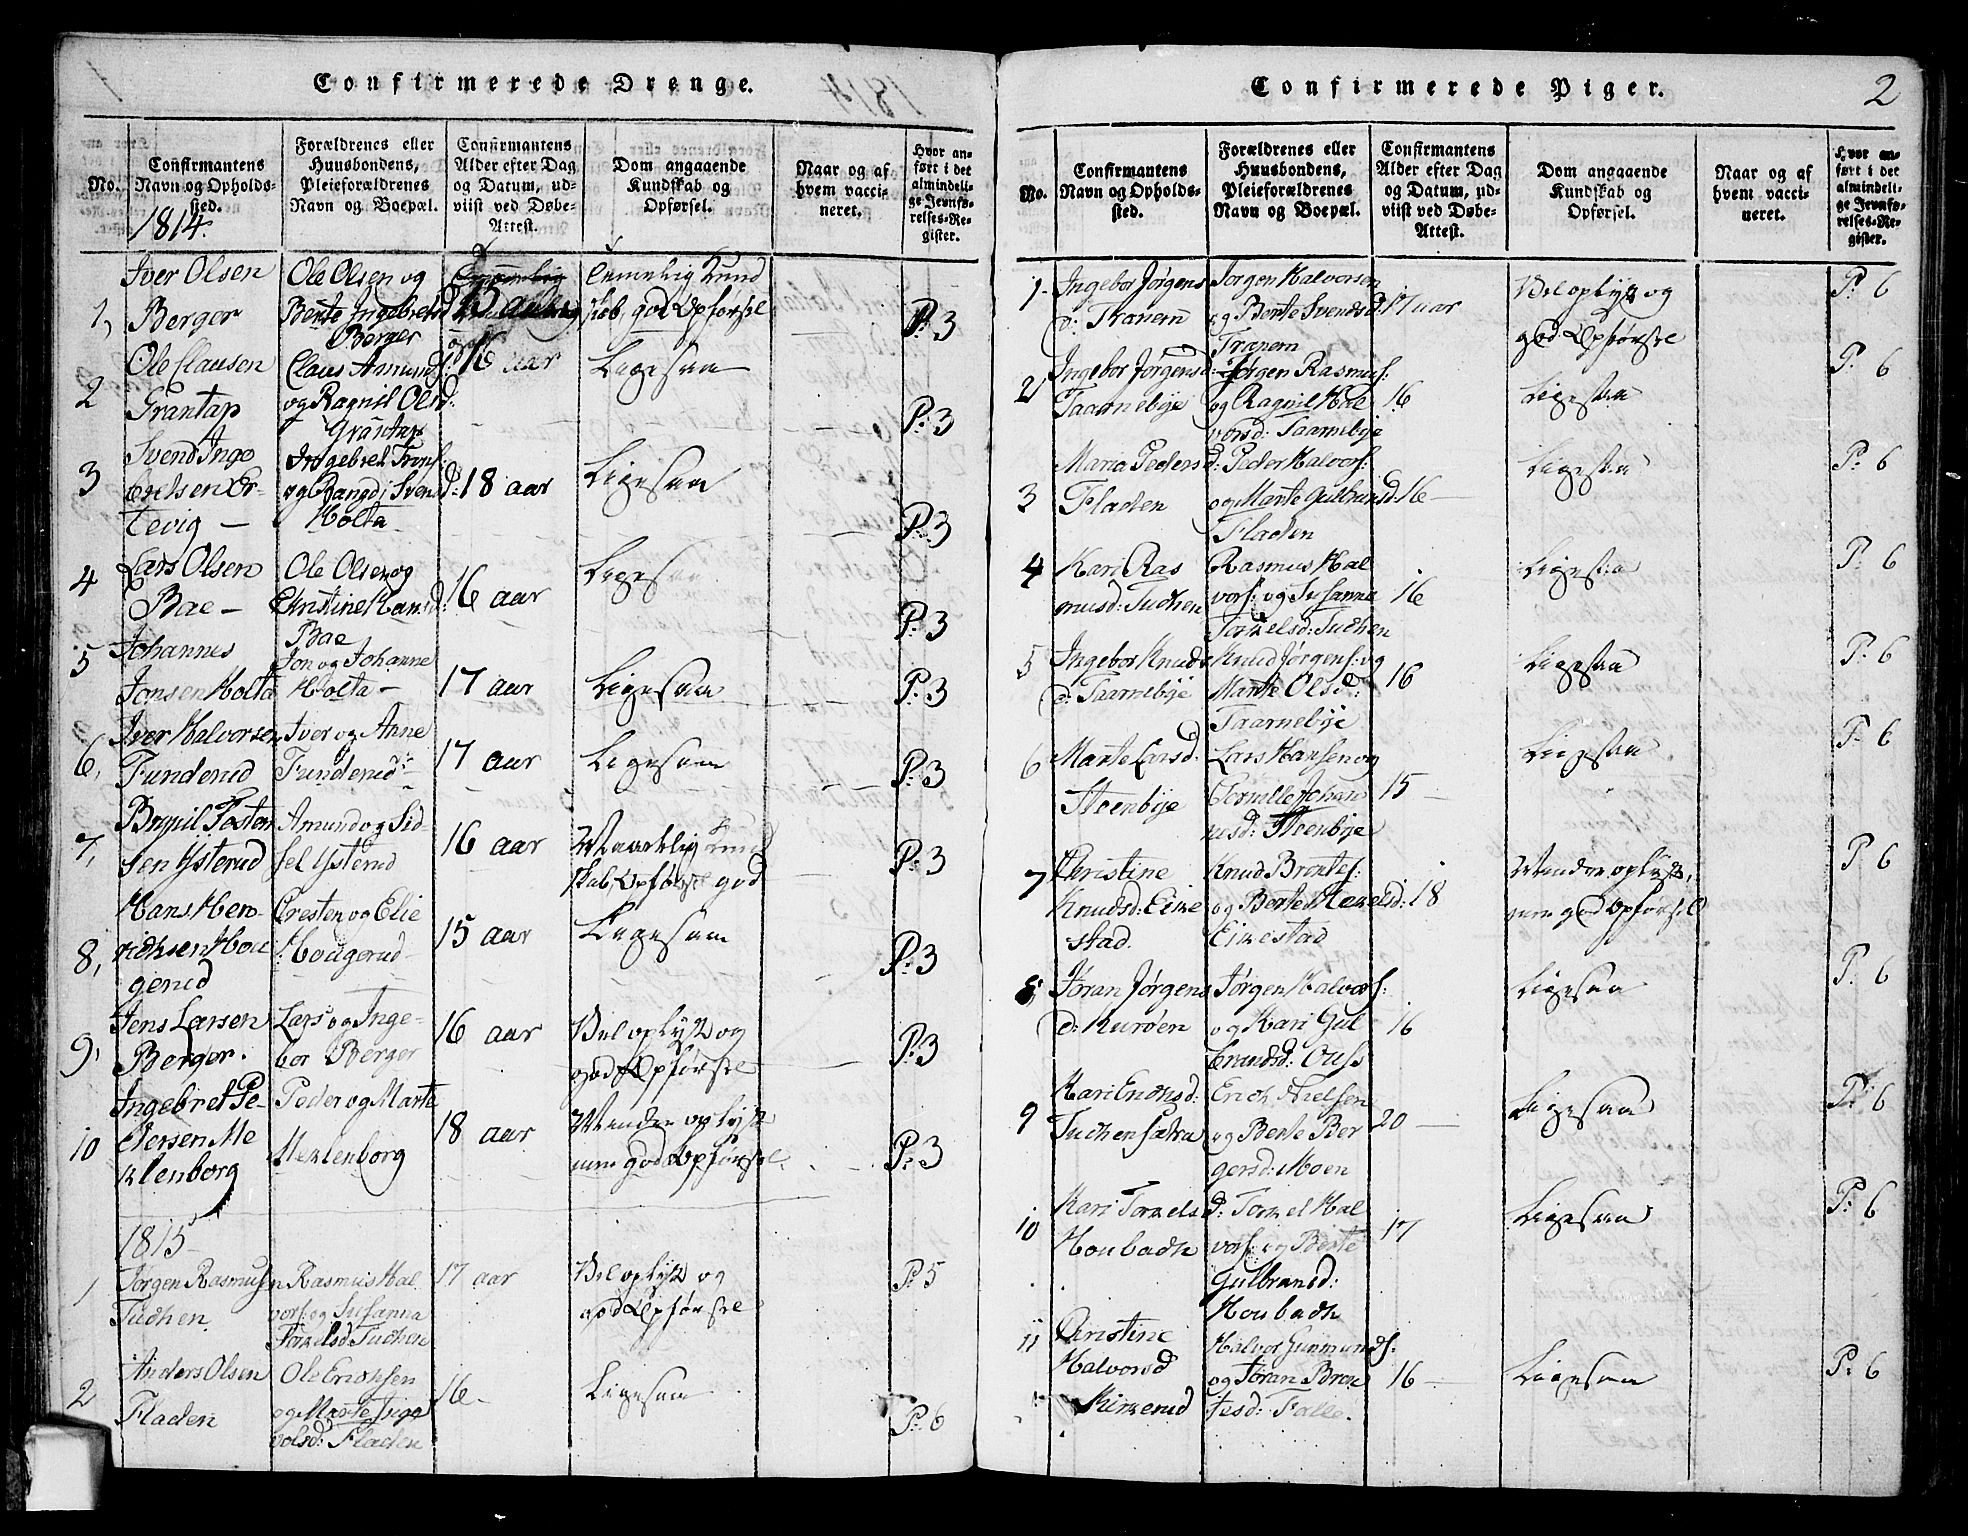 Confirmerede Drenge.
No.
Confirmantens
Navn og Opholds-
sted.
Forældrenes eller
Huusbondens,
Pleieforældrenes
Navn og Boepæl.
Confirmantens
Alder efter Dag
og Datum, ud-
viist ved Døbe-
Attest.
Dom angaaende
Kundskab og
Opførsel.
Naar og af
hvem vacci-
neret.
Hvor an-
ført i det
almindeli-
ge Jevnfø-
relses-Re-
gister.
1814.
1, Iver Olsen
Berger
Ole Olsen og
Bente Ingebretsd
Berger
15 aar
Temmelig Kund
skab, god Opførsel
P: 3
2 Ole Clausen
Grantap
Claus Amunds:
og Ragnil Olsd:
Grantap
16 aar
Ligesaa
P: 3
3 Svend Inge
bretsen Er-
tevig —
Ingebret Trons:
og Rangdi Svensd:
Holta
18 aar
Ligesaa
P: 3
4 Lars Olsen
Bae —
Ole Olsen og
Christine Hansd:
Bae
16 aar
Ligesaa
P: 3
5 Johannes
Jonsen Holta
Jon og Johanne
Holta —
17 aar
Ligesaa
P: 3
6, Iver Halvorsen
Funderud
Iver og Anne
Funderud
17 aar
Ligesaa
P: 3
7, Brynil Tosten
sen Ysterud
Amund og Sid-
sel Ysterud
16 aar
Maadelig Kund
skab, Opførsel god
P: 3
8, Hans Hen-
richsen Hou
gerud
Cresten og Elie
Hougerud
15 aar
Ligesaa
P: 3
9, Jens Larsen
Berger.
Lars og Inge-
bor Berger
16 aar
Vel oplyst og
god Opførsel
P: 3
10 Ingebret Pe-
dersen Me
klenborg
Peder og Marte
Meklenborg
18 aar
Mindre oplyst
men god Opførsel
P: 3
1815
1 Jørgen Rasmusen
Tuchen
Rasmus Hal
vors: og Susanna
Torkelsd Tuchen
17 aar
Vel oplyst og
god Opførsel
P: 5
2 Anders Olsen
Fladen
Ole Ericksen
og Marte Inge
volsd: Fladen
16 -
Ligesaa
P: 6
Confirmerede Piger.
2
No.
Confirmantens
Navn og Opholds-
sted.
Forældrenes eller
Huusbondens,
Pleieforældrenes
Navn og Boepæl.
Confirmantens
Alder efter Dag
og Datum, ud-
viist ved Døbe-
Attest.
Dom angaaende
Kundskab og
Opførsel.
Naar og af
hvem vacci-
neret.
Hvor an-
ført i det
almindeli-
ge Jevnfø-
relses-Re-
gister.
1. Ingebor Jørgens
d: Tranem
Jørgen Halvorsen
og Bente Svendsd:
Tranem
17 aar
Vel oplyst og
god Opførsel
P: 6
2, Ingebor Jørgensd:
Taarnebye
Jørgen Rasmus:
og Ragnil Hal
vorsd: Taarnebye
16
Ligesaa
P: 6
3 Maria Pedersd:
Fladen
Peder Halvors:
og Marte Gulbrandsd:
Fladen
16 —
Ligesaa
P: 6
4 Kari Ras
musd: Tuchen
Rasmus Hal
vors: og Susanne
Torkelsd: Tuchen
16
Ligesaa
P: 6
5 Ingebor Knuds
d: Taarnebye
Knud Jørgens: og
Marte Olsd:
Taarnebye
16
Ligesaa
P: 6
6 Marte Larsd:
Steenbye
Lars Hansen og
Pernille Johan
nesd: Steenbye
15 —
Ligesaa
P: 6
7 Christine
Knudsd: Eike
stad.
Knud Brontes:
og Berte Hakelsd:
Eikestad
18
Mindre oplyst,
men god Opførsel
P: 6
8 Jøran Jørgens
d: Kurøen
Jørgen Halvors:
og Kari Gul
brandsd: Ouss
16
Ligesaa
P: 6
9 Kari Erichsd:
Tuchensætra
Erich Nielsen
og Berte Ber
gersd: Moen
20 —
Ligesaa
P: 6
10 Kari Torkelsd:
Houbach
Torkel Hal
vors: og Berte
Gulbransd:
Houbach
17
Ligesaa
P: 6
11 Christine
Halvorsd
Kirkerud
Halvor Gunmunds:
og Jøran Bron
tesd: Falle.
16 —
Ligesaa
P: 6